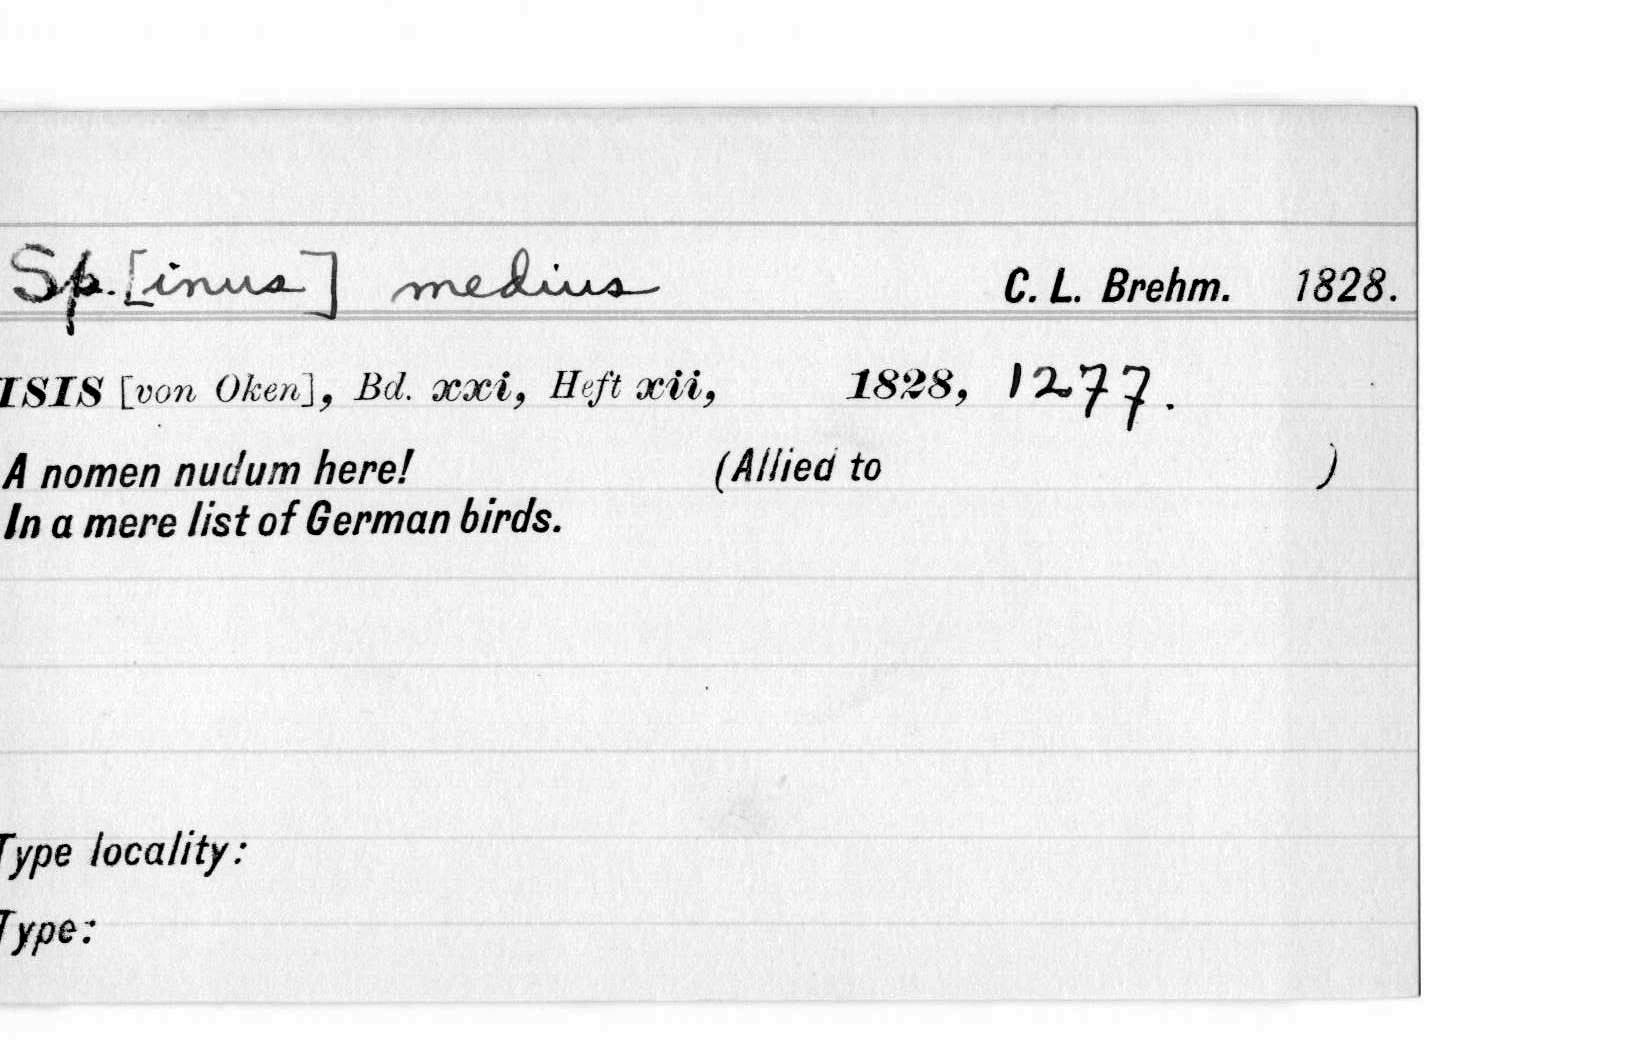 Sp.[inus] medius C. L. Brehm. 1828.
ISIS [von Oken], Bd. xxi, Heft xii, 1828, 1277.
A nomen nudum here! (Allied to )
In a mere list of German birds.
Type locality:
Type: